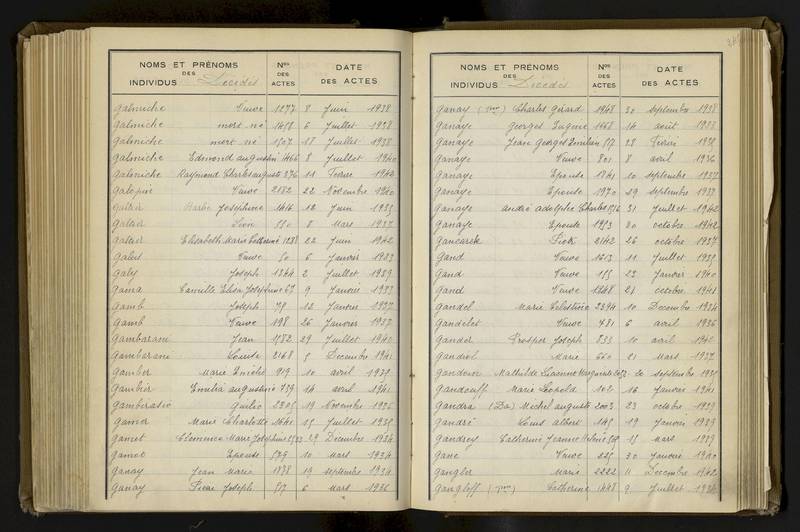 NOMS ET PRÉNOMS DES INDIVIDUS Décédés Nos DES ACTES DATE DES ACTES
Galmiche Veuve 1277 8 Juin 1938
Galmiche mort né 6 Juillet 1938
Galmiche mort né 1507 18 Juillet 1938
Galmiche Edmond Augustin 1466 8 Juillet 1940
Galmiche Raymond Charles Auguste 276 11 Février
Veuve 2182 22 Novembre 1940
Joséphine 1414 12 Juin 1935
Léon 550 8 Mars 1937
Elisabeth Marie Catherine 1238 22 Juin 1942
Veuve 50 6 Janvier 1933
Galy Joseph 1344 2 Juillet 1939
Gama Camille Elisa Joséphine 67 9 Janvier 1933
Gamb Joseph 78 12 Janvier 1937
Gamb Veuve 198 26 Janvier 1937
Gambarani Jean 1782 29 Juillet 1940
Gambarani 2168 5 Décembre 1941
Gamber Marie 919 10 avril 1939
Gambier Emélia Augustine 739 14 avril 1941
2305 19 Novembre 1936
Gamer Marie Charlotte 1641 15 Juillet 1935
Gamet Clémence Marie Joséphine 29 Décembre 1934
Gamet Epouse 579 10 mars 1934
Ganay Jean Marie 1838 19 septembre 1934
Ganay Pierre Joseph 517 6 Mars 1936
NOMS ET PRÉNOMS DES INDIVIDUS Décédés Nos DES ACTES DATE DES ACTES
Ganay Charles Gérard 1948 30 septembre 1938
Ganaye Georges Eugène 1668 14 août 1933
Ganaye Jean Georges Emilien 517 28 Février
Ganaye Veuve 801 8 avril 1936
Ganaye Epouse 1841 10 septembre 1937
Ganaye Epouse 1970 29 septembre 1937
Ganaye André Adolphe Charles 31 Juillet 1942
Ganaye Epouse 1953 30 octobre 1942
Gancarek Piotr 2142 26 octobre 1937
Gand Veuve 1613 11 Juillet 1935
Gand Veuve 155 23 Janvier 1940
Gand Veuve 1848 21 octobre 1941
Gandel Marie Célestine 2394 10 Décembre 1934
Gandelet Veuve 781 6 avril 1936
Gander Prosper Joseph 833 10 avril 1940
Gandiol Marie 660 21 Mars 1937
Mathilde Jeanne Marguerite 20 septembre
Marie Léopold 102 16 Janvier 1941
Gandra (Da) Michel Auguste 2003 23 octobre 1939
Gandré Louis Albert 145 19 Janvier 1939
Gandrey Catherine Jeanne 15 mars 1939
Gane Veuve 225 30 Janvier 1940
Gangler Marie 2222 11 Décembre 1942
Gangloff Catherine 1448 9 Juillet 1934